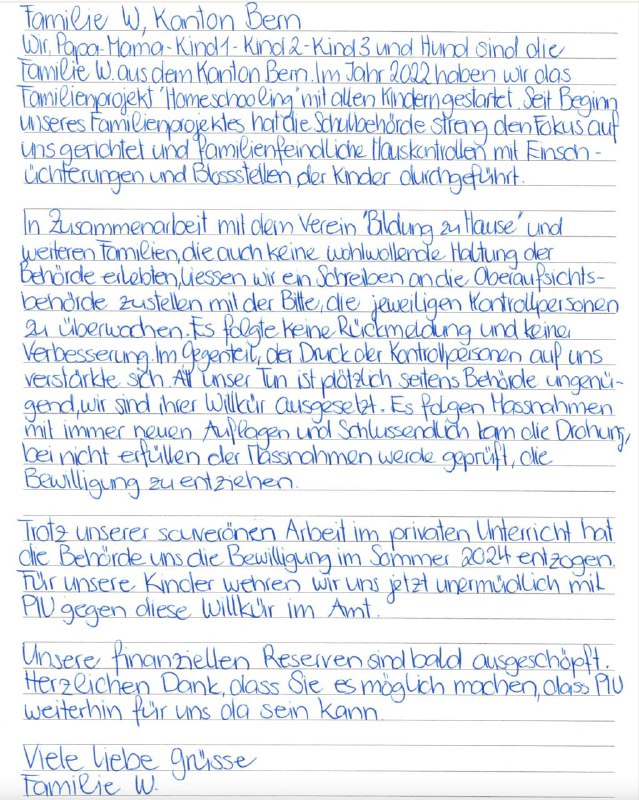 Familie W, Kanton Bern
Wir, Papa-Mama-Kind1-Kind2-Kind3 und Hund sind die
Familie W. aus dem Kanton Bern. Im Jahr 2022 haben wir das
Familienprojekt 'Homeschooling' mit allen Kindern gestartet. Seit Beginn
unseres Familienprojektes hat die Schulbehörde streng den Fokus auf
uns gerichtet und familienfeindliche Hauskontrollen mit Einsch-
üchterungen und Blossstellen der Kinder durchgeführt.

In Zusammenarbeit mit dem Verein 'Bildung zu Hause' und
weiteren Familien, die auch keine wohlwollende Haltung der
Behörde erlebten, liessen wir ein Schreiben an die Oberaufsichts-
behörde zustellen mit der Bitte, die jeweiligen Kontrollpersonen
zu überwachen. Es folgte keine Rückmeldung und keine
Verbesserung. Im Gegenteil, der Druck der Kontrollpersonen auf uns
verstärkte sich. All unser Tun ist plötzlich seitens Behörde ungenü-
gend, wir sind ihrer Willkür ausgesetzt. Es folgen Massnahmen
mit immer neuen Auflagen und Schlussendlich kam die Drohung,
bei nicht erfüllen der Massnahmen werde geprüft, die
Bewilligung zu entziehen.

Trotz unserer souveränen Arbeit im privaten Unterricht hat
die Behörde uns die Bewilligung im Sommer 2024 entzogen.
Für unsere Kinder wehren wir uns jetzt unermüdlich mit
PIU gegen diese Willkür im Amt.

Unsere finanziellen Reserven sind bald ausgeschöpft.
Herzlichen Dank, dass Sie es möglich machen, dass PIU
weiterhin für uns da sein kann.

Viele liebe Grüsse
Familie W.